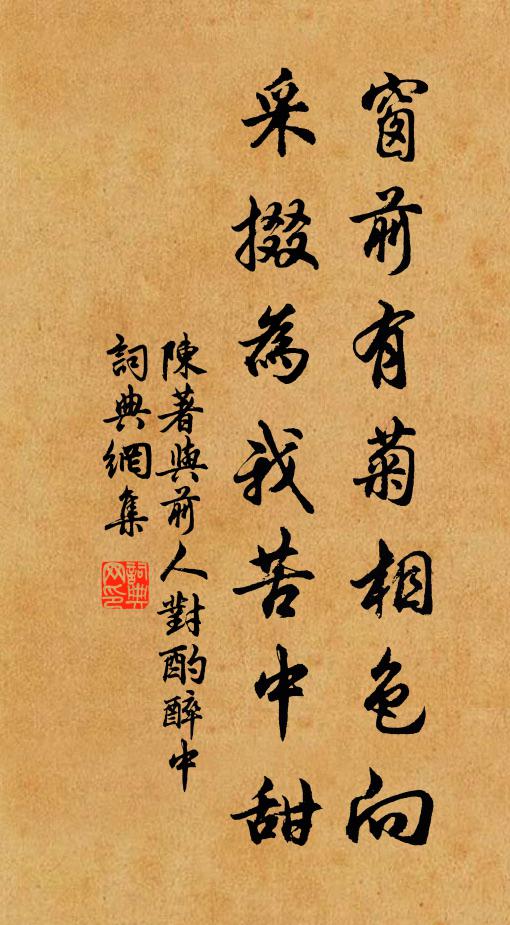 窗前有菊相色向
采掇為我苦中甜
陳著與前人對酌醉中
詞典網集
詞典網印